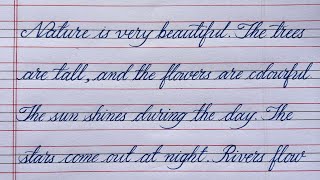 Nature is very beautiful. The trees
are tall, and the flowers are colourful.
The sun shines during the day. The
stars come out at night. Rivers flow